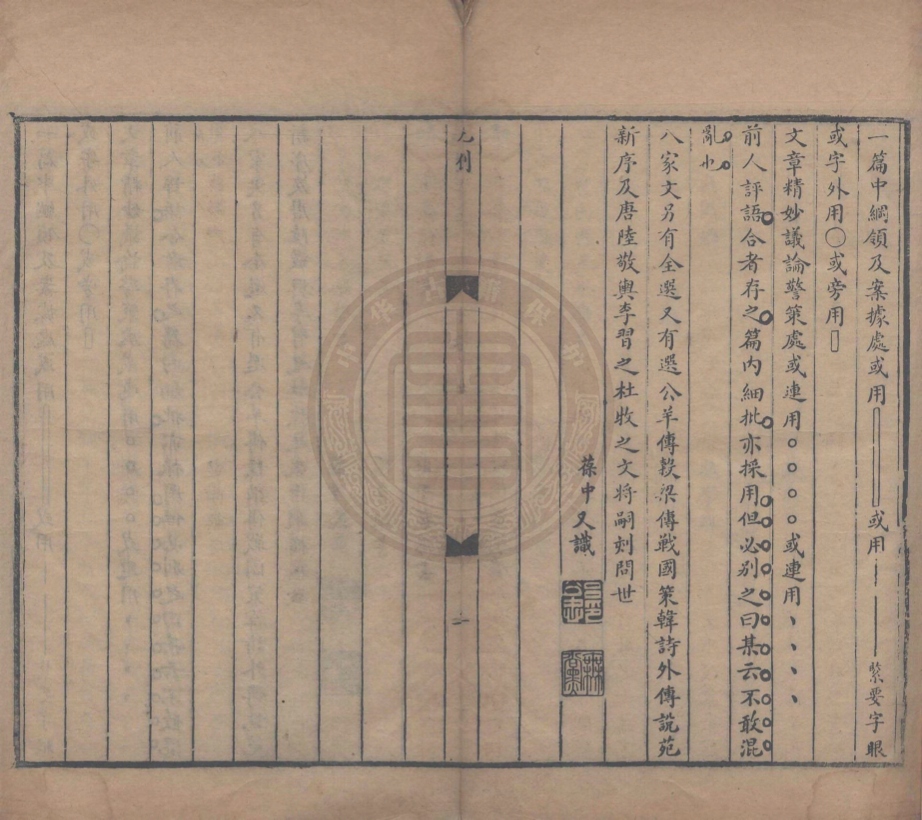 一篇中綱領及案據處或用﹝﹞或用——緊要字眼
或字外用〇或旁用▯
文章精妙議論警策處或連用。。。。或連用、、、、
前人評語合者存之篇內細批亦採用但必別之曰某云不敢混
亂也
八家文另有全選又有選公羊傳穀梁傳戰國策韓詩外傳說苑
新序及唐陸敬輿李習之杜牧之文將嗣刻問世
葆中又識
凡例
二